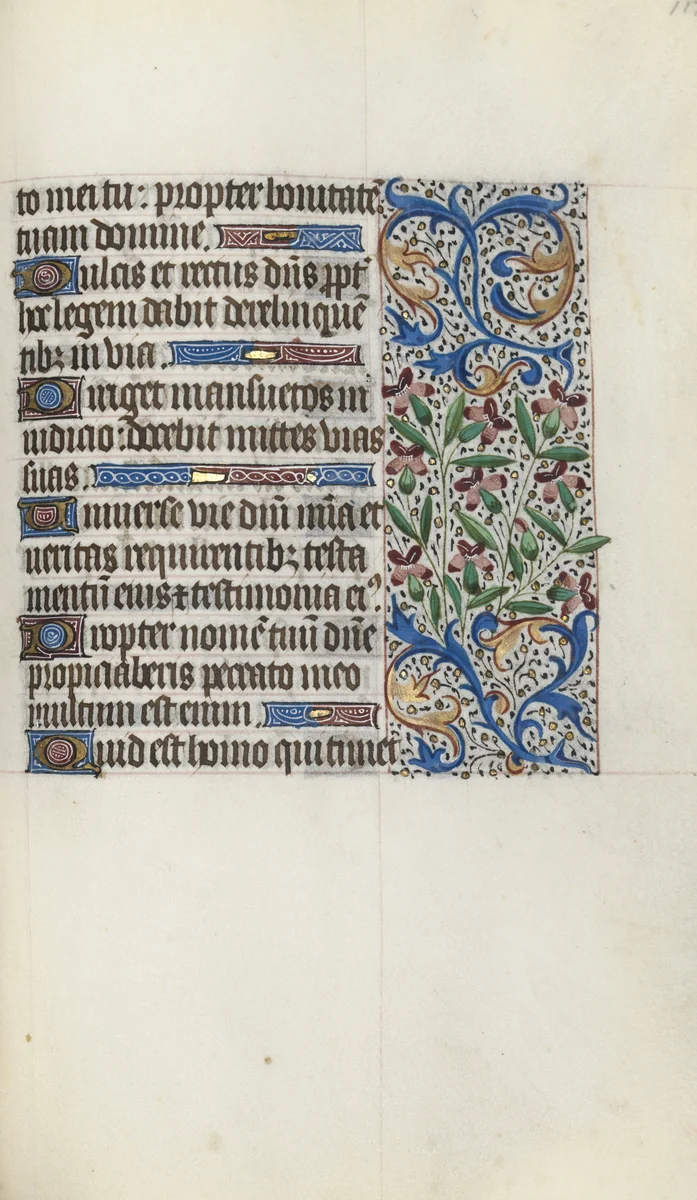 to mei tu : propter bonitatē
tuam domine.
Dulcis et rectus dn̄s ꝓpt̛
hoc legem dabit derelinquē
tibꝫ in via.
Diriget mansuetos in
iudicio : docebit mittes vias
suas.
Uniuerse vie dīu m̄ia et
ueritas requirentibꝫ testa
mentū eius ⁊ testimonia eiꝰ.
Propter nomē tuū dn̄e
propiciaberis peccato meo
multum est enim.
Quid est homo qui timet